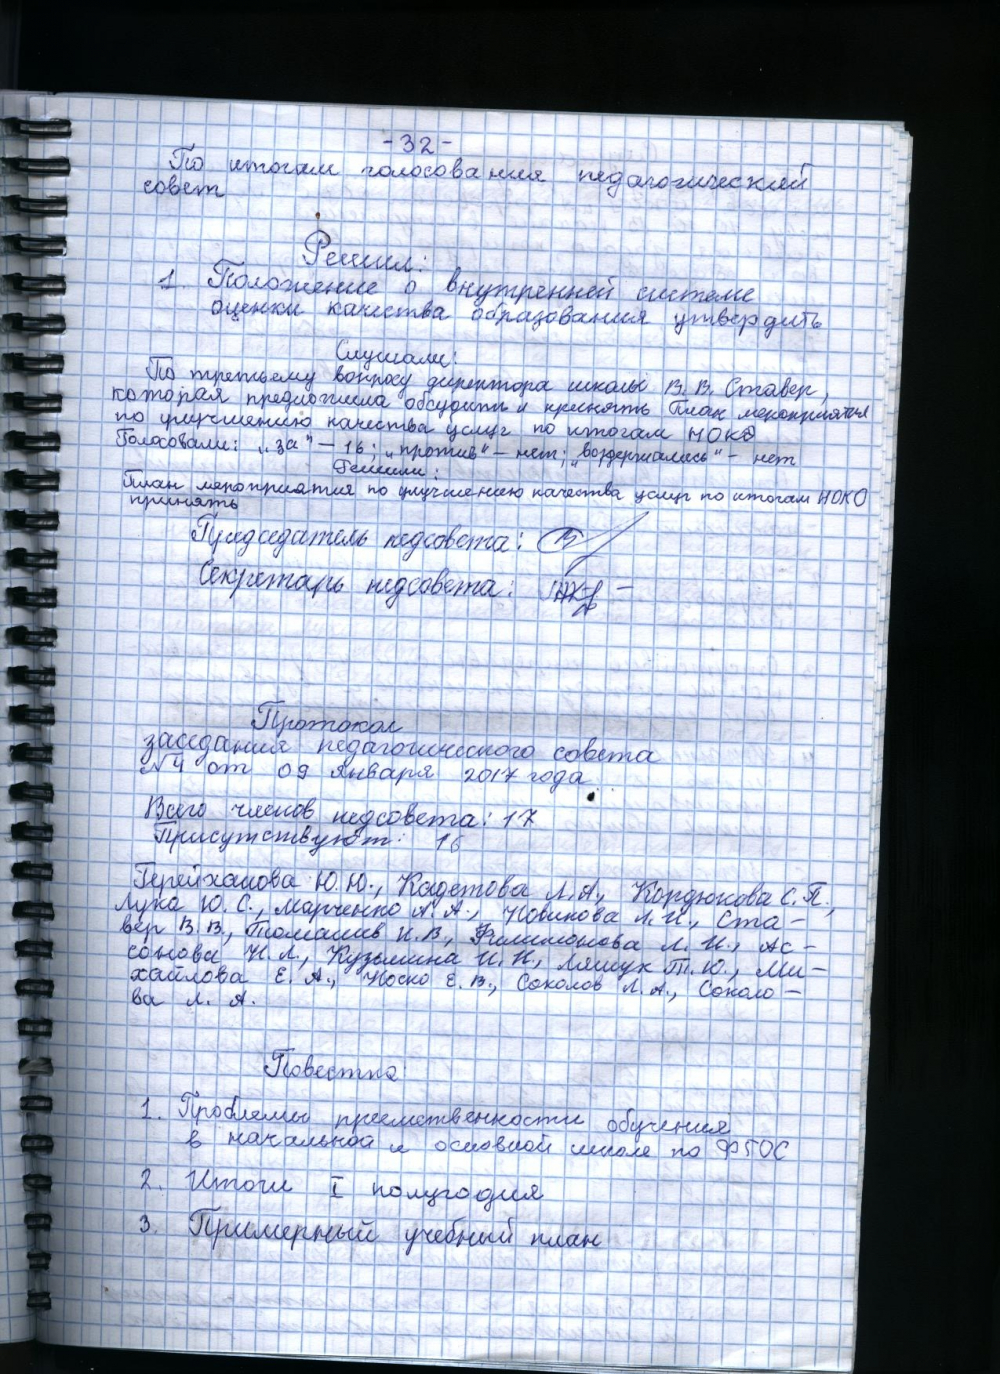 -32-
По итогам голосования педагогический
совет
Решил:
1. Положение о внутренней системе
оценки качества образования утвердить
Слушали:
По третьему вопросу директора школы В.В. Ставер,
которая предложила обсудить и принять План мероприятия
по улучшению качества услуг по итогам НОКО
Голосовали: „за" – 16; „против" – нет; „воздержалась" – нет
Решили:
План мероприятия по улучшению качества услуг по итогам НОКО
принять
Председатель педсовета:
Секретарь педсовета:
Протокол
заседания педагогического совета
№4 от 09 января 2017 года
Всего членов педсовета: 17
Присутствуют: 16
Герейханова Ю.Ю., Кадетова Л.А., Кордюкова С.П.,
Лука Ю.С., Марченко А.А., Новикова Л.И., Ста-
вер В.В., Томашив И.В., Филимонова Л.И., Ас-
сонова Н.Л., Кузьмина И.Н., Ляшук Т.Ю., Ми-
хайлова Е.А., Носко Е.В., Соколов Л.А., Соколо-
ва Л.А.
Повестка:
1. Проблемы преемственности обучения
в начальной и основной школе по ФГОС
2. Итоги I полугодия
3. Примерный учебный план